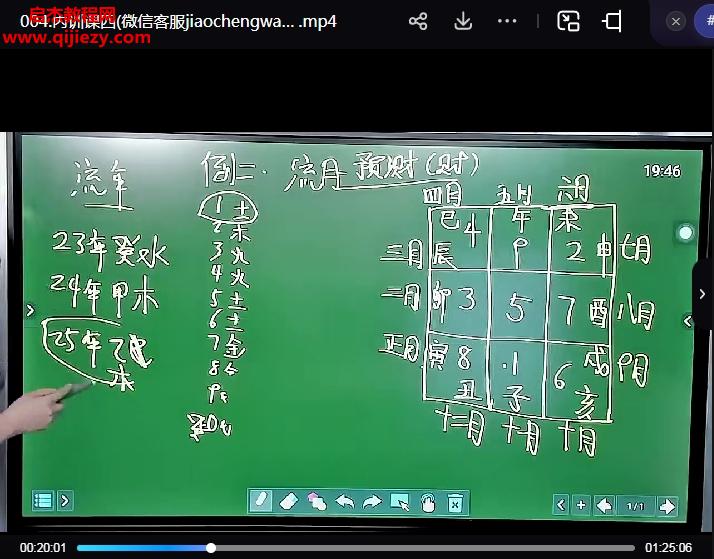 启杰教育网
www.qijiezy.com
004.内训课四(微信客服jiaochengwa... .mp4
19:46
流年
23年癸水
24年甲木
25年乙
木
例二. 流月预财(财)
1土
2木
3火
4火
5土
6土
7金
8
9
四月 五月 六月
巳 4 午 9 未 2 申 七月
三月 辰
二月 卯 3 5 7 酉 八月
正月 寅 8 1 6 戌 九月
丑 子 亥
十二月 十一月 十月
1/1
00:20:01
01:25:06